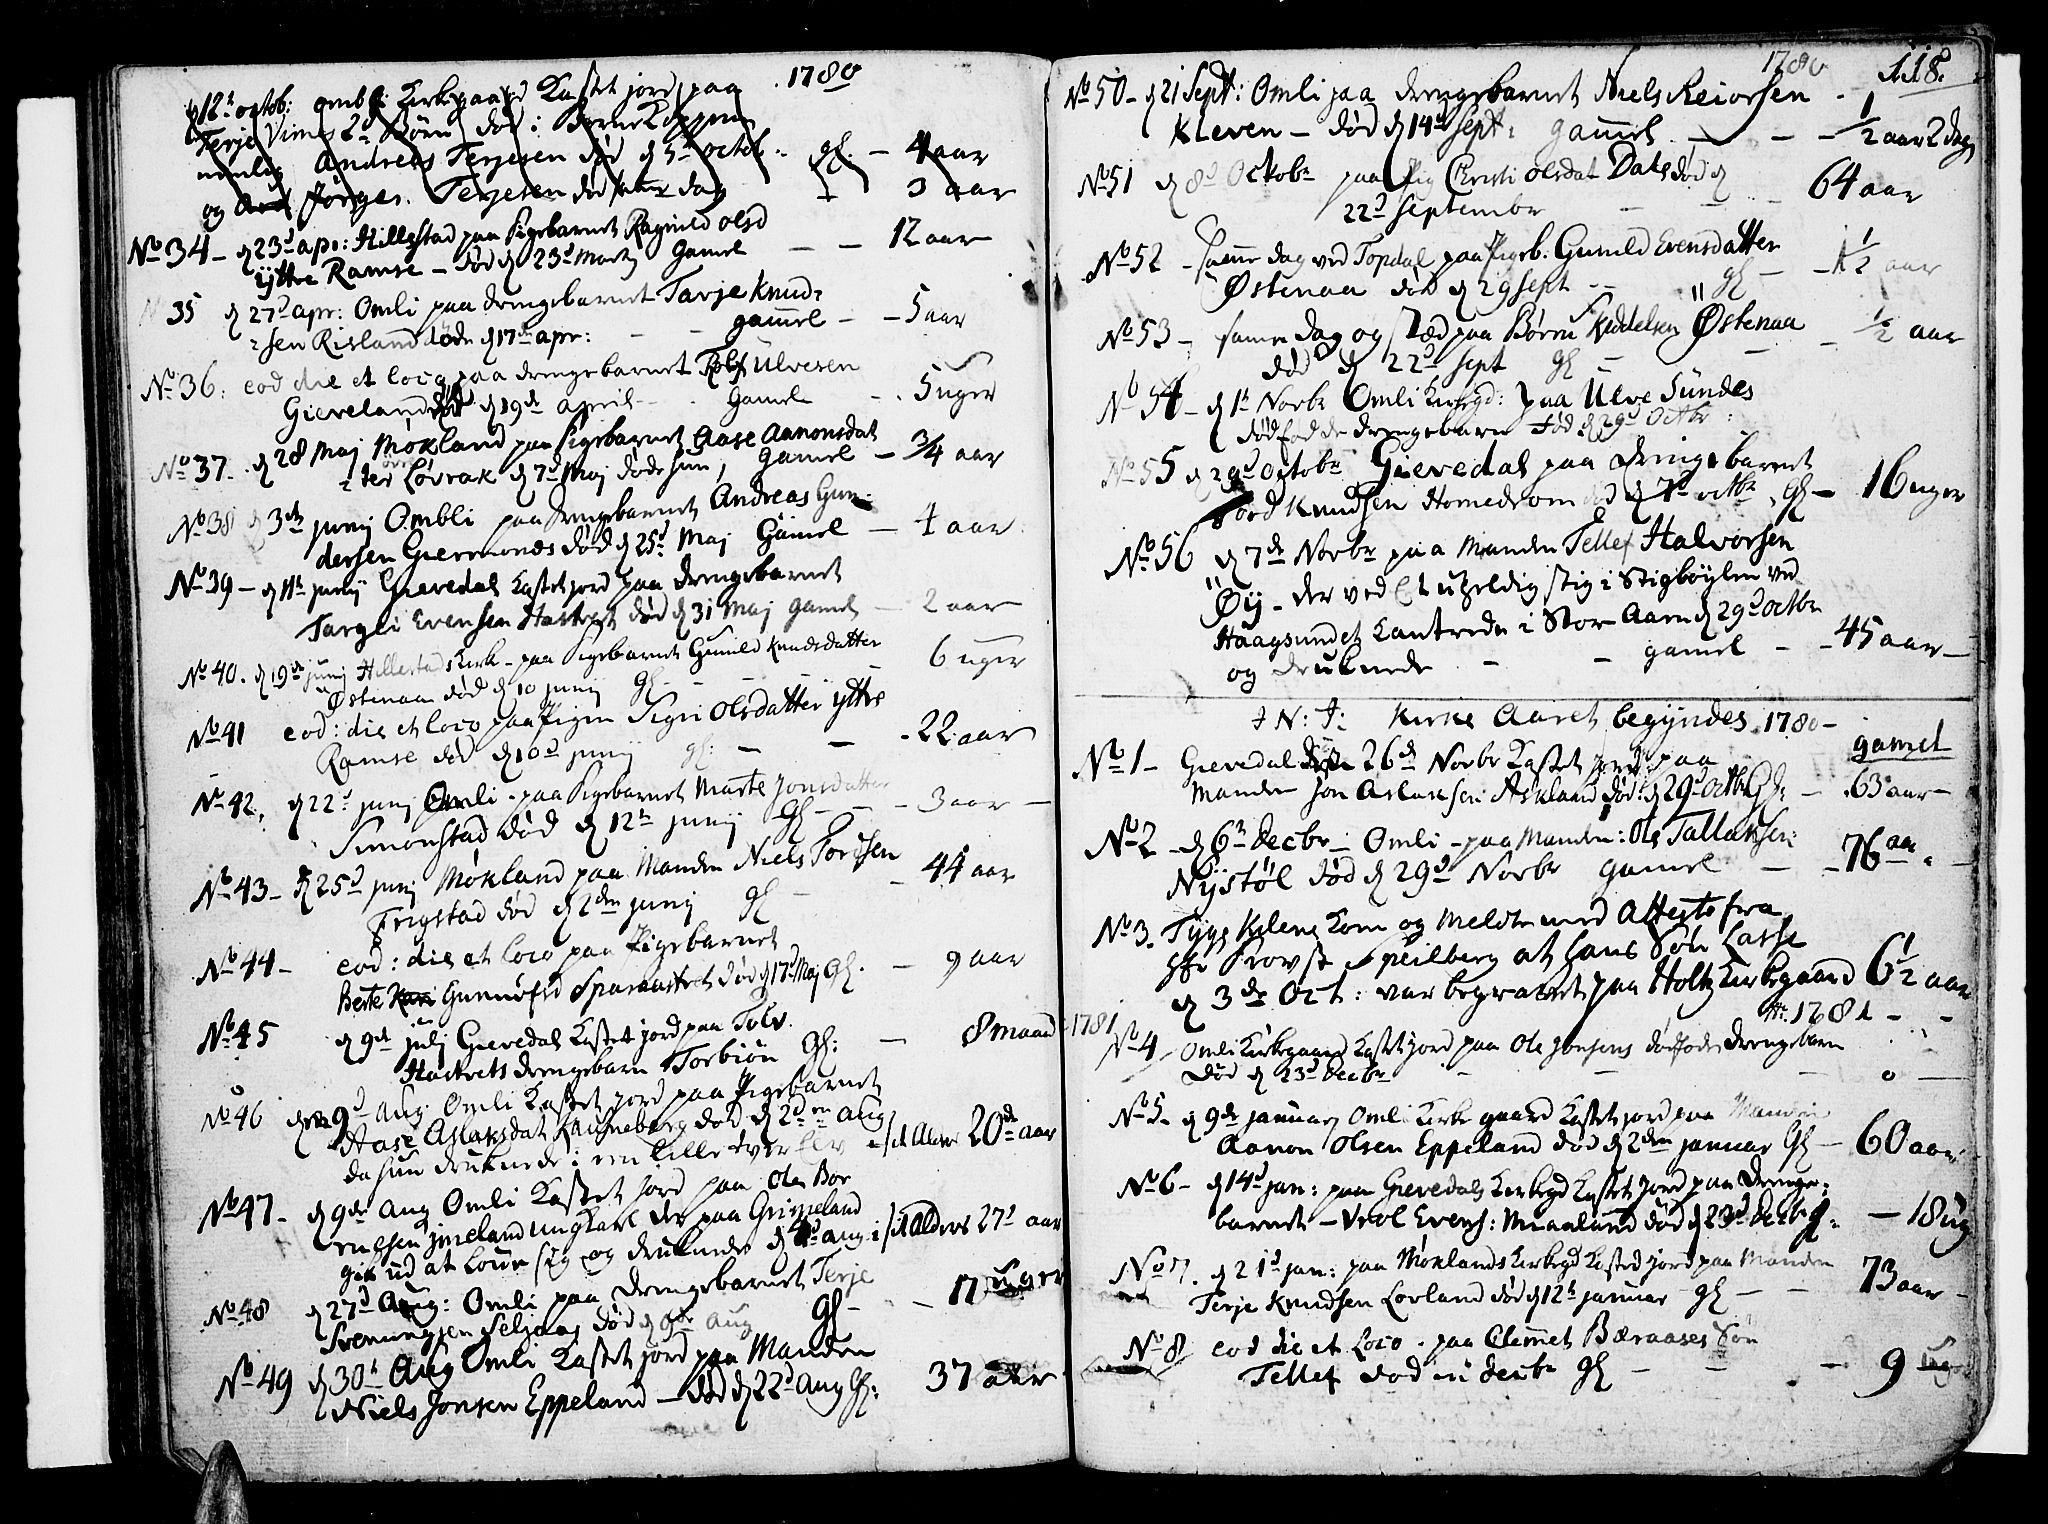 1780
d 12t octob: Omli Kirkegaard Kastet jord paa
Terje Vimes 2d Børn død i Børne Kopperne
nemlig Andreas Terjesen død d 5t octob: gl. — 4 aar
og Jørgen Terjesen død samme dag 3 aar
No 34 — d 23d apr: Hillestad paa Pigebarnet Ragnild olsd
ÿttre Ramse — død d 23d Marti Gamel — — 12 aar
35 d 27d apr: Omli paa drengebarnet Tarje Knud-
-sen Risland døde d 17de apr: — — gamel — 5 aar
No 36: eod die et loco paa drengebarnet Rolf Ulvesen
Gieveland død d 19de april — Gamel — 5 uger
No 37. d 28 Maj Møkland paa Pigebarnet Aase Aanonsdat
-ter Løvrak d 7d Maj døde hun, Gamel — 3/4 aar
No 38 d 3de junij Ombli paa drengebarnet Andreas Gun-
dersen Giermonds død d 25d Maj Gamel — 4 aar
No 39 — d 11t junij Gievedal Kastet jord paa drengebarnet
Targei Evensen død d 31 Maj gamel — 2 aar
No 40. d 19de junij Hillestad Kirk — paa Pigebarnet Gunild Knudsdatter
Østenaa død d 10 junij gl — 6 uger
No 41 eod: die et loco paa Pigen Sigri olsdatter ÿttre
Ramse død d 10d junij gl: — — 22 aar
No 42, d 22d junij Omli — paa Pigebarnet Marte Jonsdatter
Simonstad død d 12t junij Gl — 3 aar —
No 43 — d 25d junij Møkland paa Manden Niels Tordsen
Frigstad død d 2den junij gl — 44 aar
No 44 — eod: die et loco paa Pigebarnet
Berte Gunnulfsd død d 17d Maj Gl. — 9 aar
No 45 d 9de julj Gievedal Kastet jord paa Tolv.
Hastvets drengebarn Torbiøn Gl: — 8 maand
No 46 d 9d Aug Omli Kastet jord paa Pigebarnet
Aase Aslaksdat død d 2den Aug
da hun druknede i en lille tver Elv i sit Alders 20de aar
No 47 — d 9de Aug Omli Kastet jord paa Ole Bor
-melsen jmeland ungkarl der paa Grimeland
gik ud at løve sig og druknede d 4d aug i sit Alders 27d aar
No 48 d 27d Aug: Omli paa drengebarnet Terje
Svenungsen Seljaas død d 9de Aug Gl — 17 uger
No 49 d 30t Aug Omli Kastet jord paa Manden
Niels Jonsen Eppeland — død d 22d Aug Gl: 37 aar
1780 118.
No 50 — d 21 Sept: Omli paa drengebarnet Niels Reiorsen
Kleven — død d 14d Sept: gamel — — 1/2 aar 2 dag
No 51 d 8d Octobr paa Pig Christi olsdat Dals død d
22d Septembr — — — 64 aar
No 52 — samme dag ved Topdal paa Pigeb. Gunild Evensdatter
Østenaa død d 29 sept — gl — 1 1/2 aar
No 53 — samme dag og stæd paa Børn Keddelsen Østenaa
død d 22d Sept gl — — 1/2 aar
No 54 — d 1t Novbr Omli Kirkegd: paa Ulve Sundes
dødfødde drengebarn død d 29d Octbr:
No 55 d 29d Octobr Gievedal paa drengebarnet
Tord Knudsen Homedrom død d 7d octbr. Gl — 16 uger
No 56 d 7de Novbr paa Manden Tellef Halvorsen
Øÿ — der ved Et utzeldig stig i Stigbøÿlen ved
Haagsundet Kantrede i Stor Aaen d 29d octbr
og druknede — — gamel — 45 aar —
J N: J: Kirke Aaret begÿndes 1780 —
gamel
No 1 — Gievedal d 26de Novbr Kastet jord paa
Manden Jon Aslaksen Askland død d 29d octbr Gl: — 63 aar
No 2 — d 6te Decbr — Omli — paa Manden: Ole Tallaksen:
Nÿstøl død d 29d Novbr gamel — 76 aar
No 3. Tÿge Kilene kom og Meldte med Attest fra
Hr Provst Speilberg at hans Søn Lasse
d 3de Oct: var begravet paa Holts Kirkegaard 6 1/2 aar
Ao. 1781 — —
1781
No 4 Omli Kirkegaard Kastet jord paa Ole Jonsens dødfødde drengebarn
død d 23d Decbr — — — 0 —
No 5. d 9de januarj Omli Kirke gaard Kastet jord paa Manden
Aanon Olsen Eppeland død d 2den januar Gl — 60 aar
No 6 — d 14d jan: paa Gievedals Kirkegd Kastet jord paa drenge-
barnet — Veol Evens: Miaaland død d 23d Decbr gl: — 18 ug
No 7. d 21d jan: paa Møklands Kirkegd Kasted jord paa Manden
Terje Knudsen Lovland død d 12t januar gl — — 73 aar —
No 8 eod die et Loco — paa Clemet Bæraases Søn
Tellef død in decbr gl — — — 9 uger